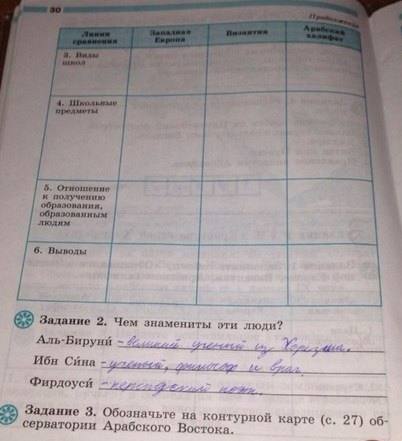 30
Продолжение
Линия сравнения
Западная Европа
Византия
Арабский халифат
3. Виды школ
4. Школьные предметы
5. Отношение к получению образования, образованным людям
6. Выводы
Задание 2. Чем знамениты эти люди?
Аль-Бируни́ – великий ученый из Хорезма.
Ибн Си́на – ученый, философ и врач.
Фирдоуси́ – персидский поэт.
Задание 3. Обозначьте на контурной карте (с. 27) об-
серватории Арабского Востока.